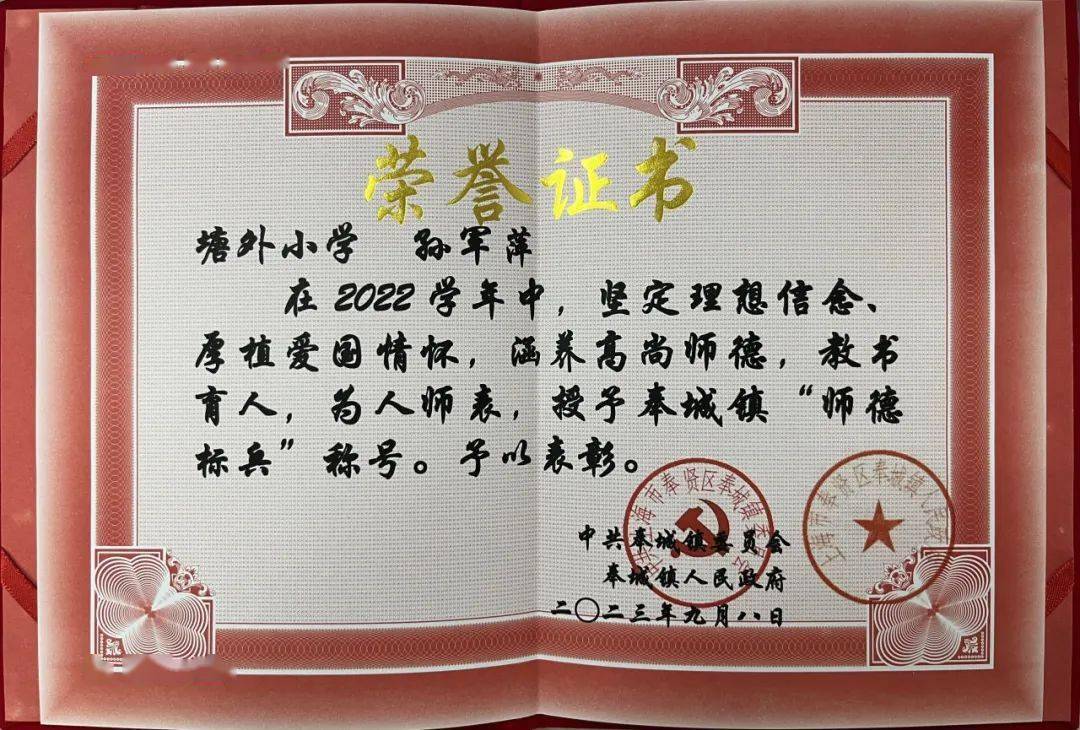 荣誉证书
塘外小学 孙军萍
在2022学年中，坚定理想信念、
厚植爱国情怀，涵养高尚师德，教书
育人，为人师表，授予奉城镇“师德
标兵”称号。予以表彰。
中共奉城镇委员会
奉城镇人民政府
二〇二三年九月八日
上海市奉贤区奉城镇人民政府